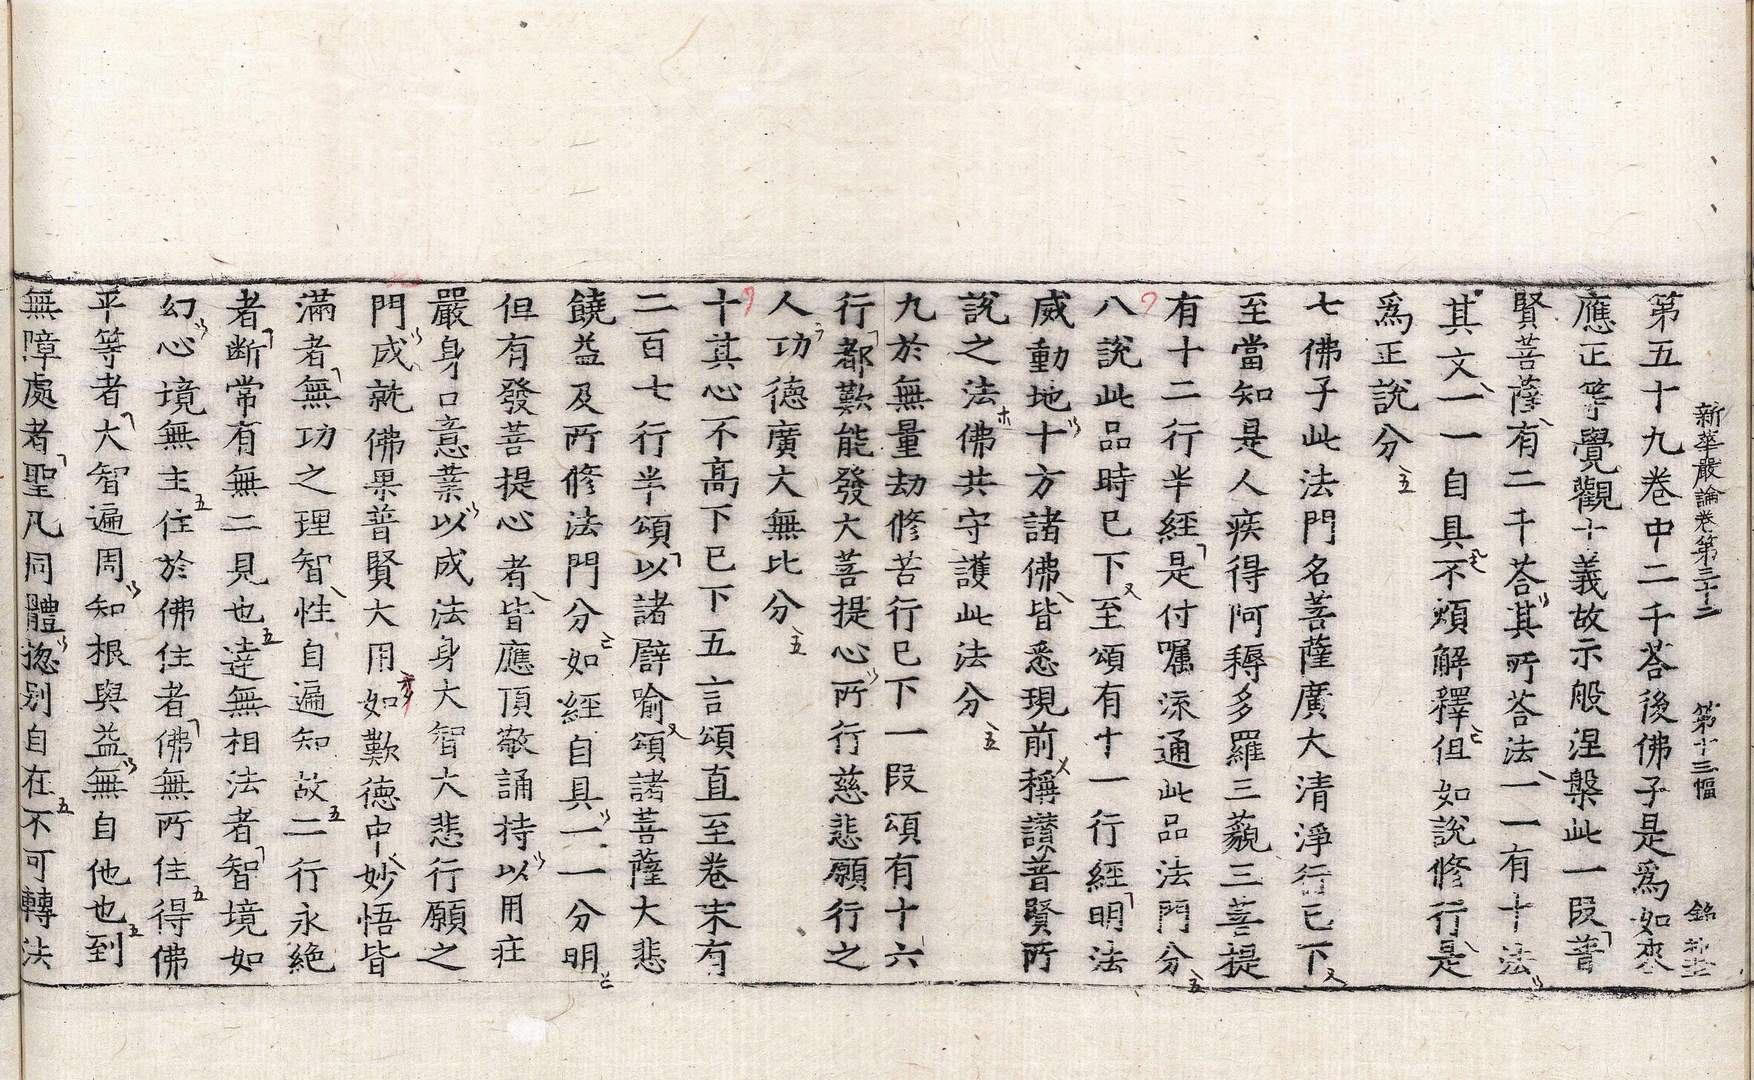 新華嚴論卷第三十二 第十三幅 銘
第五十九卷中二千荅後佛子是爲如來
應正等覺觀十義故示般涅槃此一段普
賢菩薩有二千荅其所荅法一一有十法
其文一一自具不煩解釋但如說修行是
爲正說分
七佛子此法門名菩薩廣大清淨行已下
至當知是人疾得阿耨多羅三藐三菩提
有十二行半經是付囑流通此品法門分
八說此品時已下至頌有十一行經明法
威動地十方諸佛皆悉現前稱讃普賢所
說之法佛共守護此法分
九於無量劫修苦行已下一段頌有十六
行都歎能發大菩提心所行慈悲願行之
人功德廣大無比分
十其心不高下已下五言頌直至卷末有
二百七行半頌以諸辟喻頌諸菩薩大悲
饒益及所修法門分如經自具一一分明
但有發菩提心者皆應頂敬誦持以用庄
嚴身口意業以成法身大智大悲行願之
門成就佛果普賢大用如歎德中妙悟皆
滿者無功之理智性自遍知故二行永絕
者斷常有無二見也達無相法者智境如
幻心境無主住於佛住者佛無所住得佛
平等者大智遍周知根與益無自他也到
無障處者聖凡同體揔别自在不可轉法